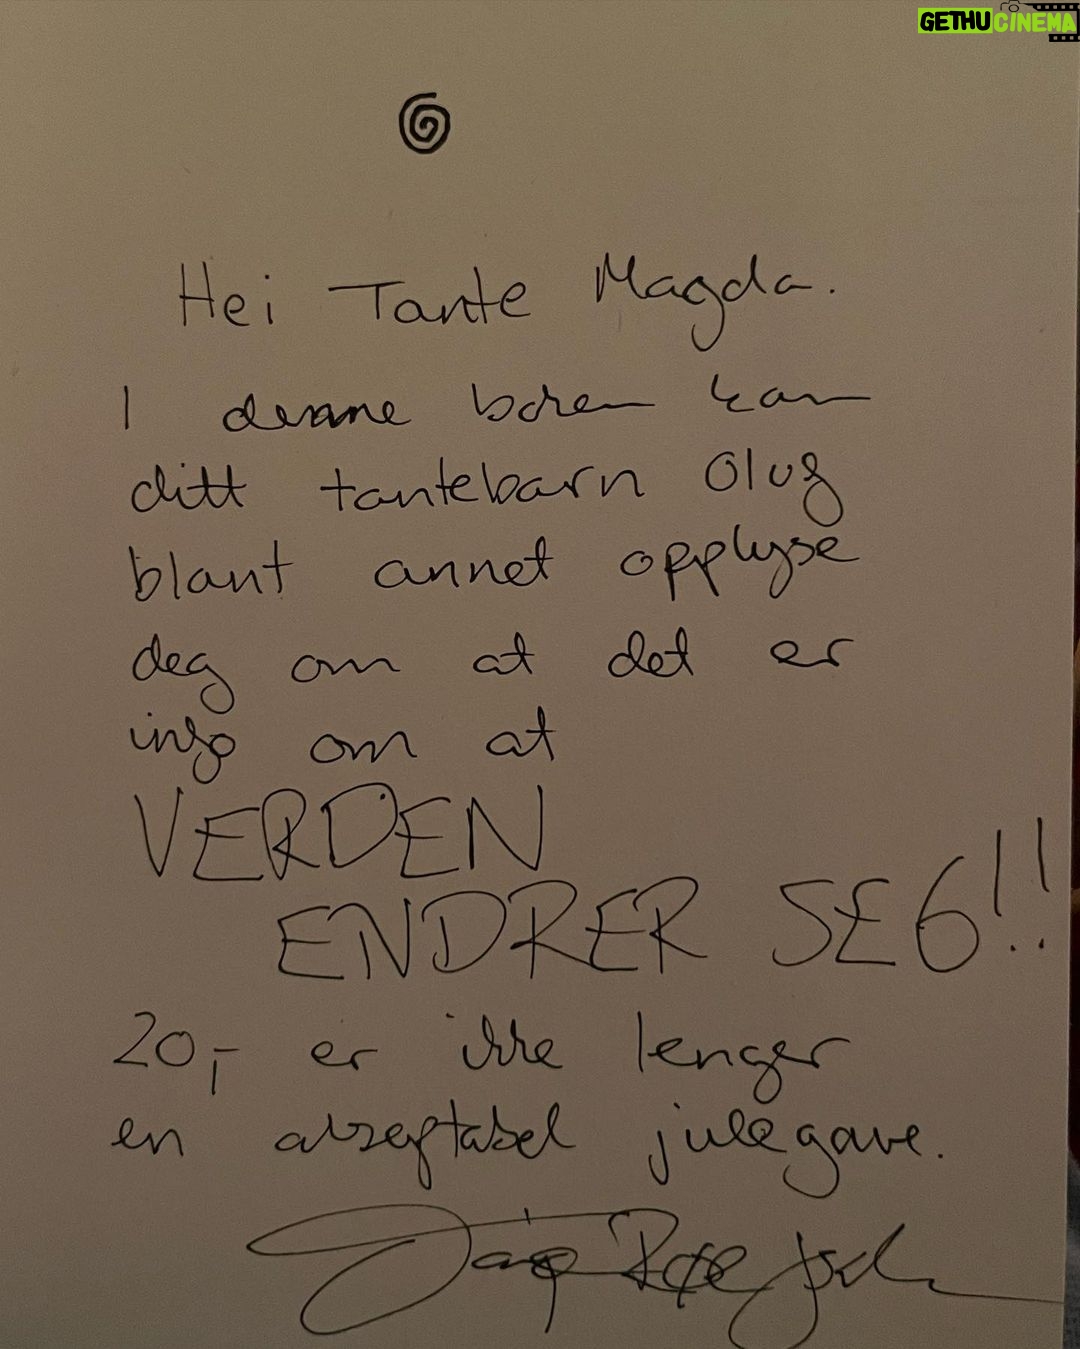 GETHUCINEMA
Hei Tante Magda.
I denne boken kan
ditt tantebarn Oluf
blant annet opplyse
deg om at det er
info om at
VERDEN
ENDRER SEG!!
20,- er ikke lenger
en akseptabel julegave.